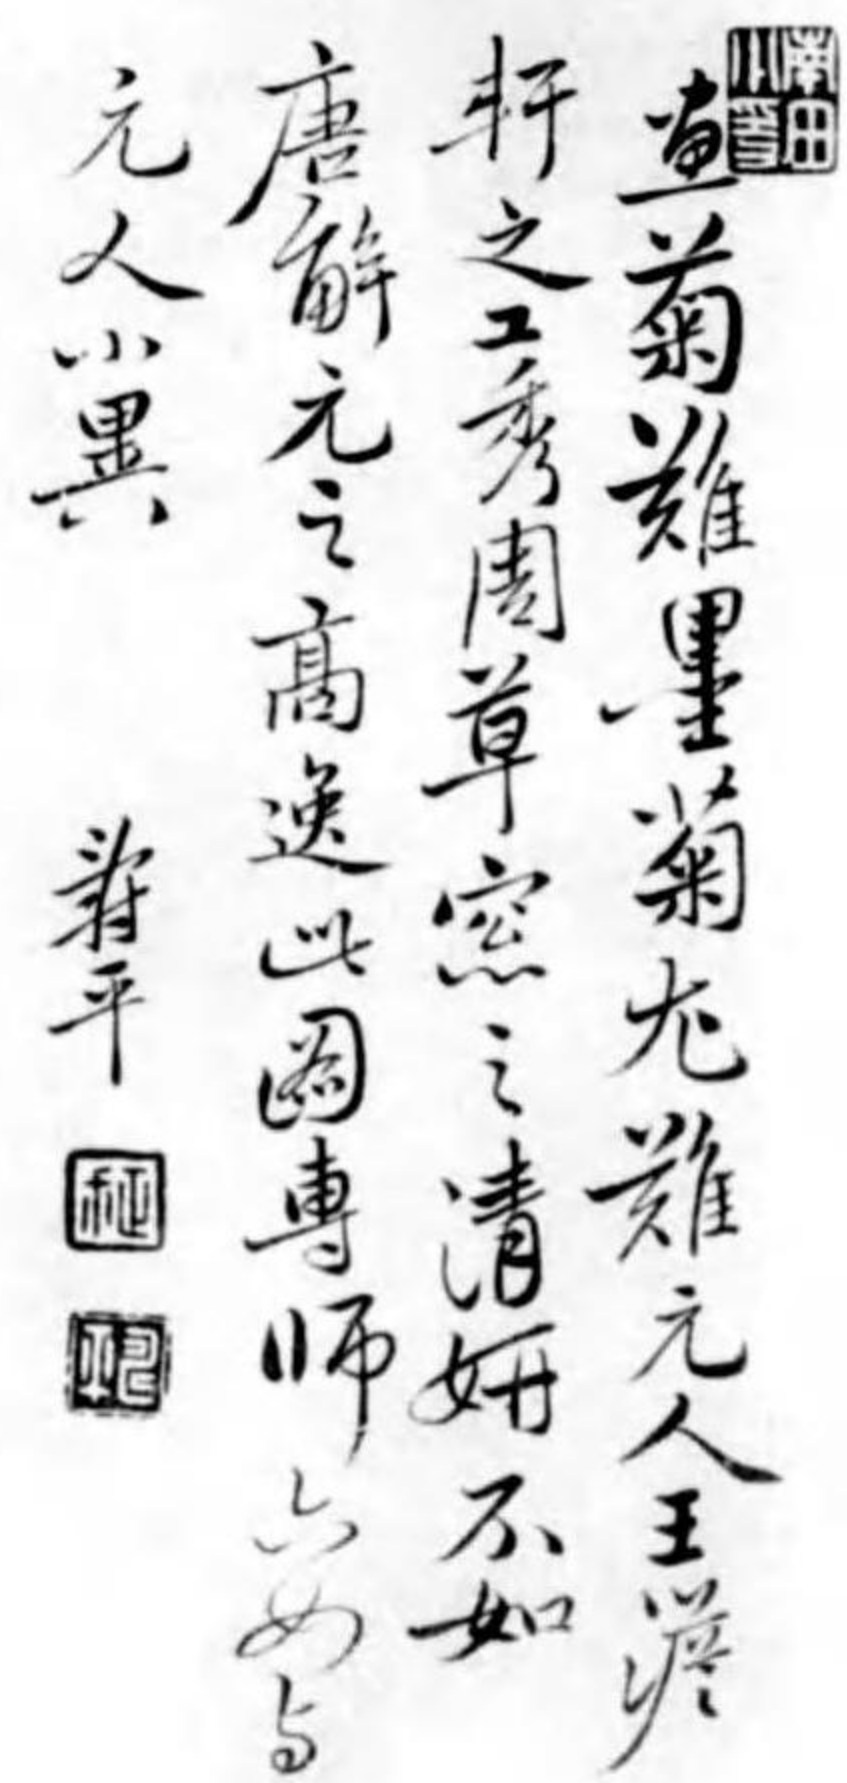 畫菊難墨菊尤難元人王澹
軒之工秀周草窓之清妍不如
唐解元之高逸此圖專師六如与
元人小異
壽平
南田